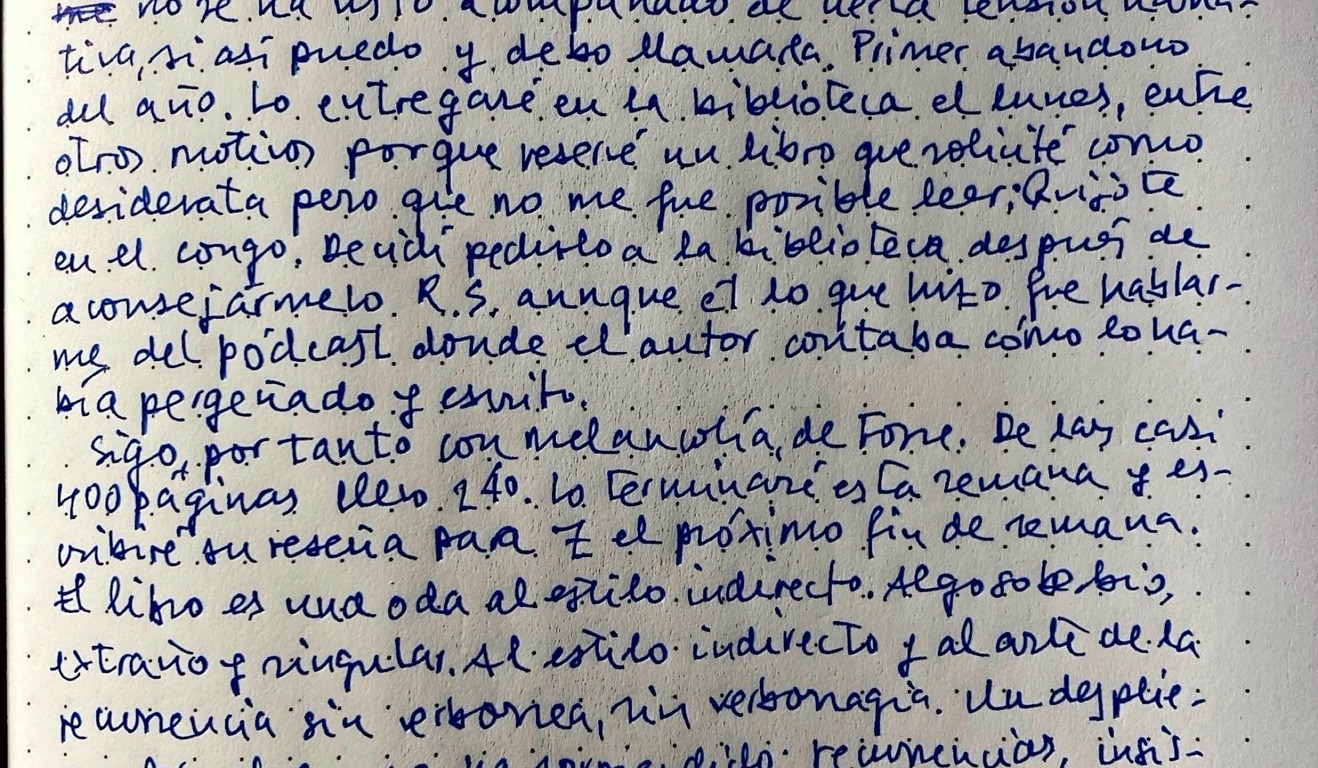 no se ha visto acompañado de cierta tensión narra-
tiva, si así puedo y debo llamarla. Primer abandono
del año. Lo entregaré en la biblioteca el lunes, entre
otros motivos porque reservé un libro que solicité como
desiderata pero que no me fue posible leer: Quijote
en el congo. Decidí pedirlo a la biblioteca después de
aconsejármelo R.S. aunque él lo que hizo fue hablar-
me del pódcast donde el autor contaba cómo lo ha-
bía pergeñado y escrito.
Sigo, por tanto con melancolía, de Fosse. De las casi
400 páginas llevo 240. Lo terminaré esta semana y es-
cribiré su reseña para Z el próximo fin de semana.
El libro es una oda al estilo indirecto. Algo soberbio,
extraño y singular. Al estilo indirecto y al arte de la
recurrencia sin verborrea, sin verbonagia. Un desplie-
recurrencias, insis-